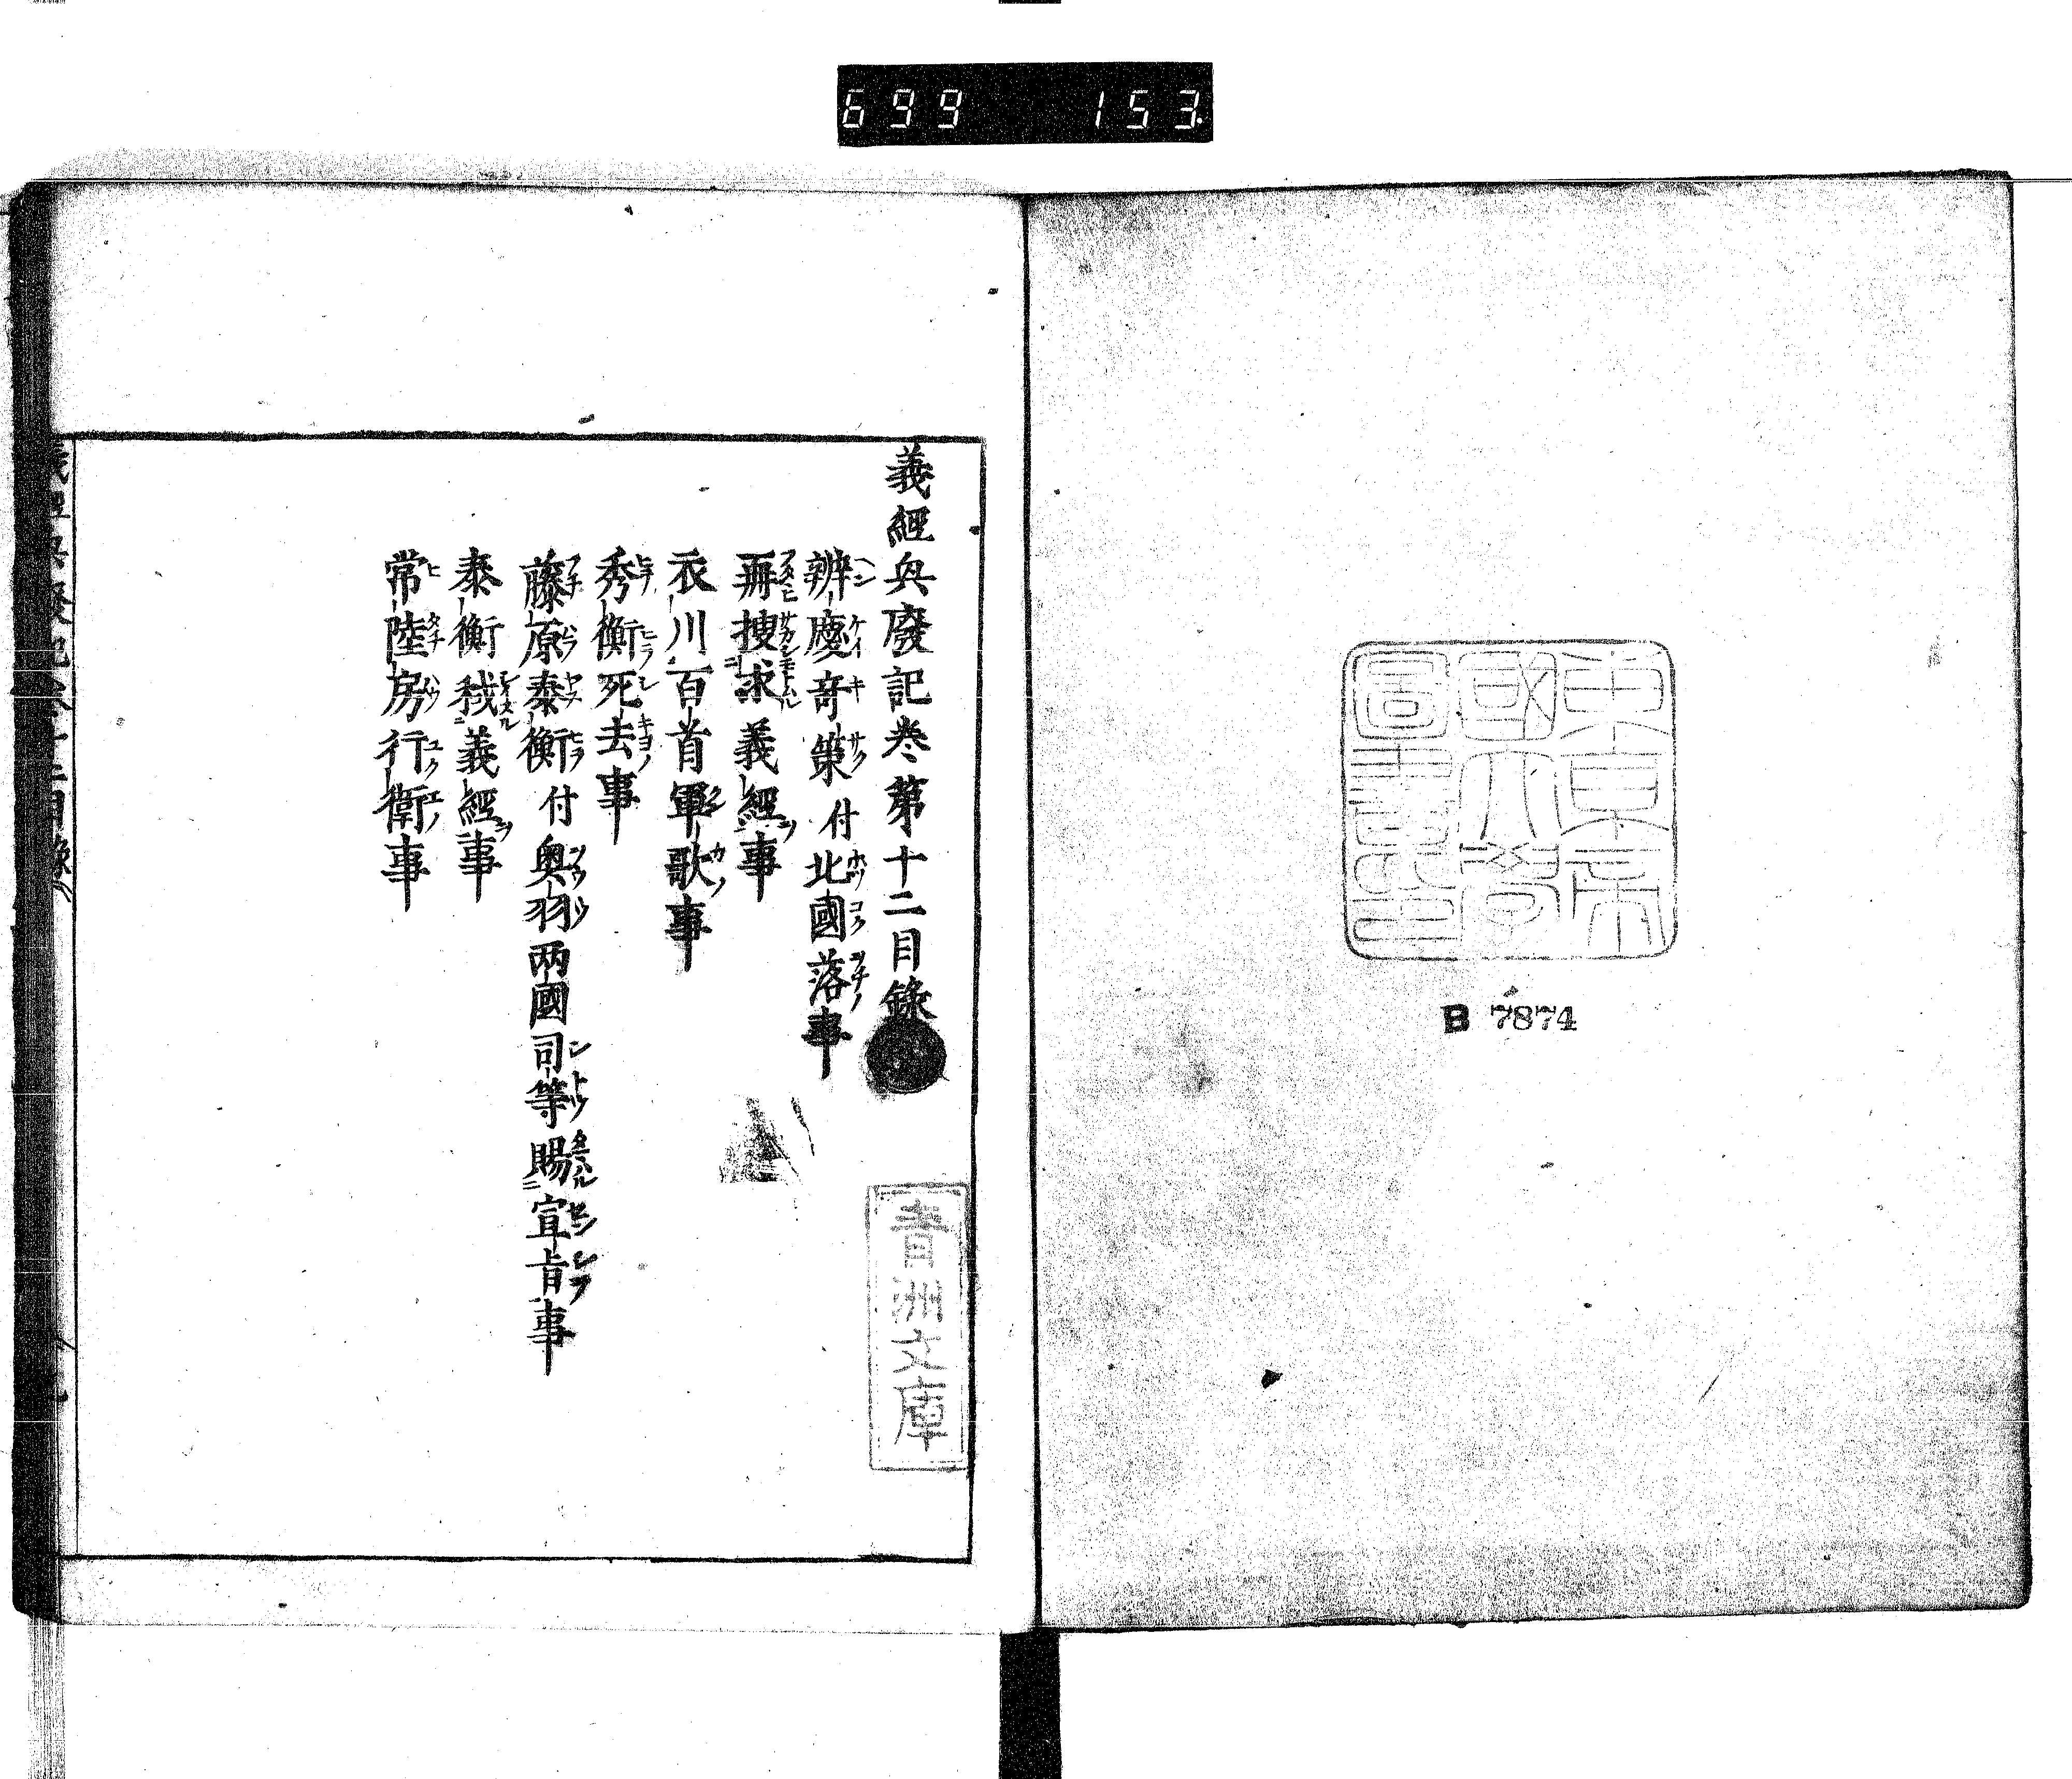 699 153
東京帝
國大學
圖書印
B 7874
義經興廢記巻第十二目錄
辨慶奇策付北國落事
再捜求義經事
衣川百首軍歌事
秀衡死去事
藤原泰衡付奥羽両國司等賜宣旨事
泰衡弑義經事
常陸房行衛事
青洲文庫